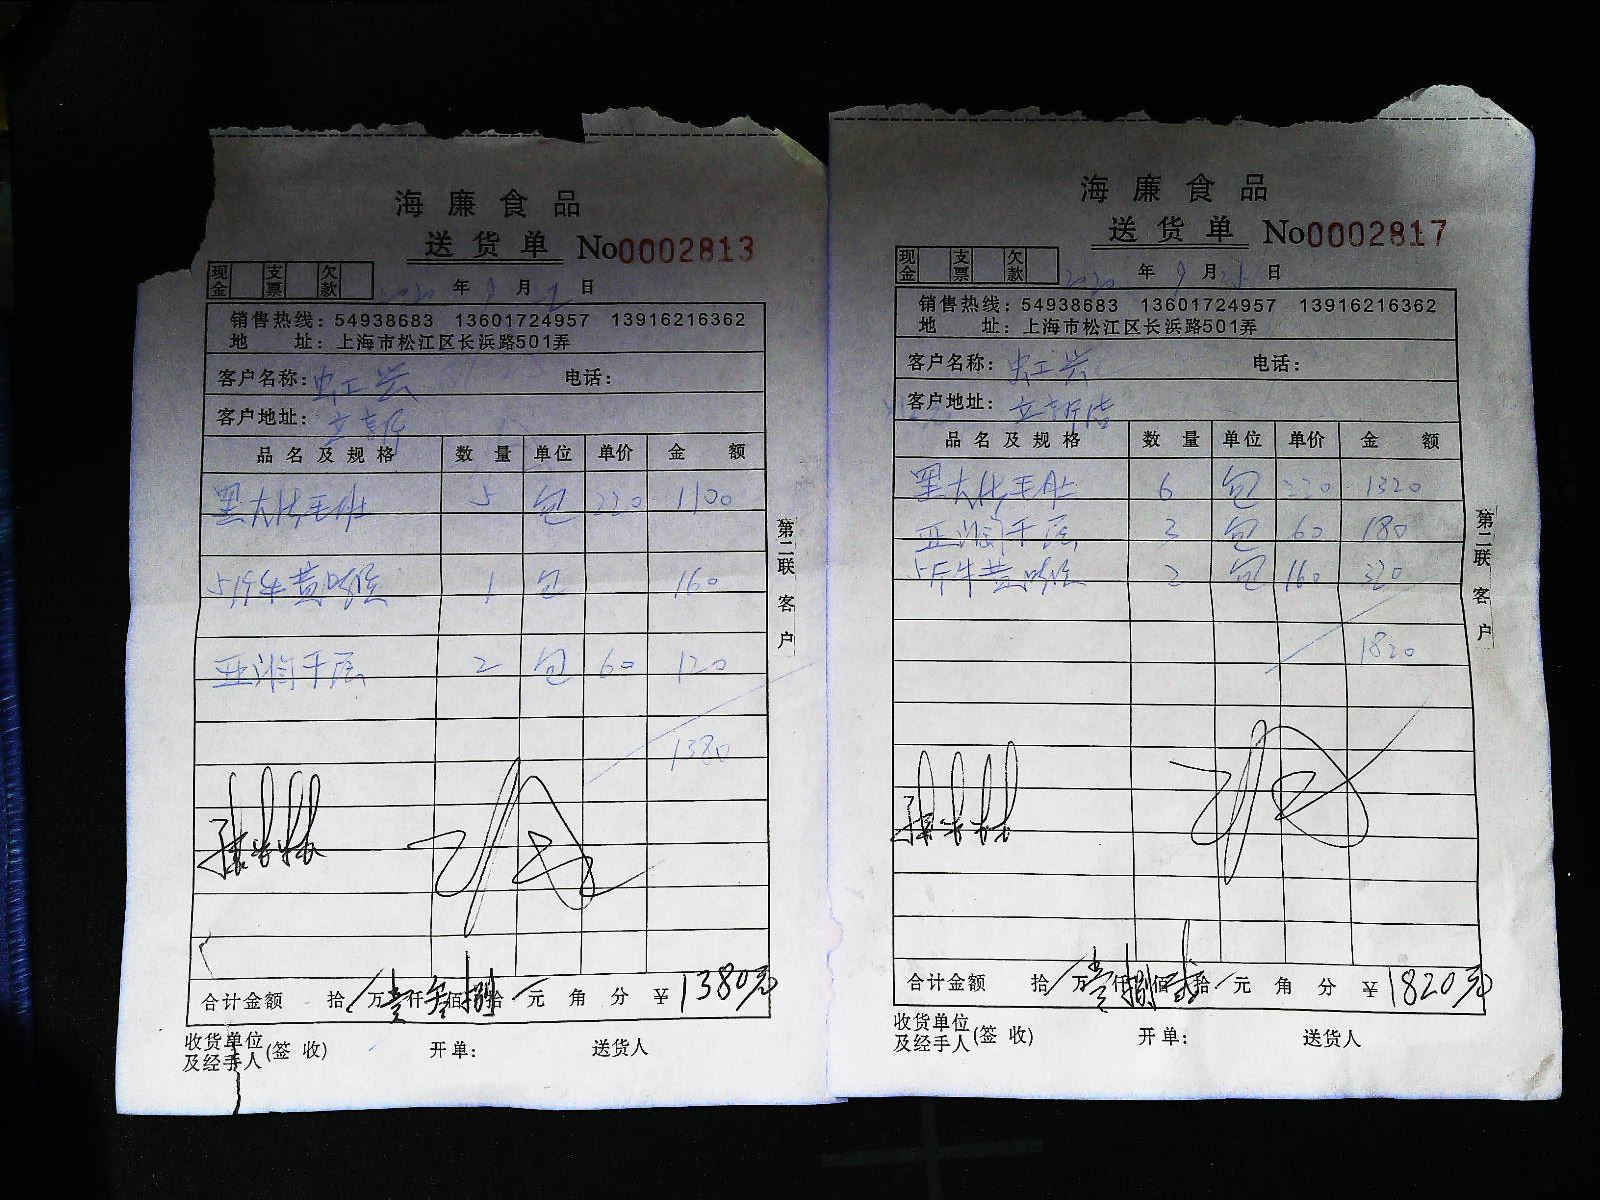 海廉食品
送货单 No0002813
现金 支票 欠款
2020 年 9 月 2 日
销售热线：54938683 13601724957 13916216362
地 址：上海市松江区长浜路501弄
客户名称：虹工兴 电话：
客户地址：
品名及规格 数量 单位 单价 金额
黑大化毛肚 5 包 220 1100
5斤牛黄喉 1 包 160
亚润千层 2 包 60 120
1380
合计金额 拾 万 壹 仟 叁 佰 捌 拾 元 角 分 ￥1380元
收货单位及经手人(签收) 开单： 送货人
第二联 客户
海廉食品
送货单 No0002817
现金 支票 欠款
2020 年 9 月 25 日
销售热线：54938683 13601724957 13916216362
地 址：上海市松江区长浜路501弄
客户名称：虹工兴 电话：
客户地址：
品名及规格 数量 单位 单价 金额
黑大化毛肚 6 包 220 1320
亚润千层 3 包 60 180
5斤牛黄喉 2 包 160 320
1820
合计金额 拾 万 壹 仟 捌 佰 贰 拾 元 角 分 ￥1820元
收货单位及经手人(签收) 开单： 送货人
第二联 客户